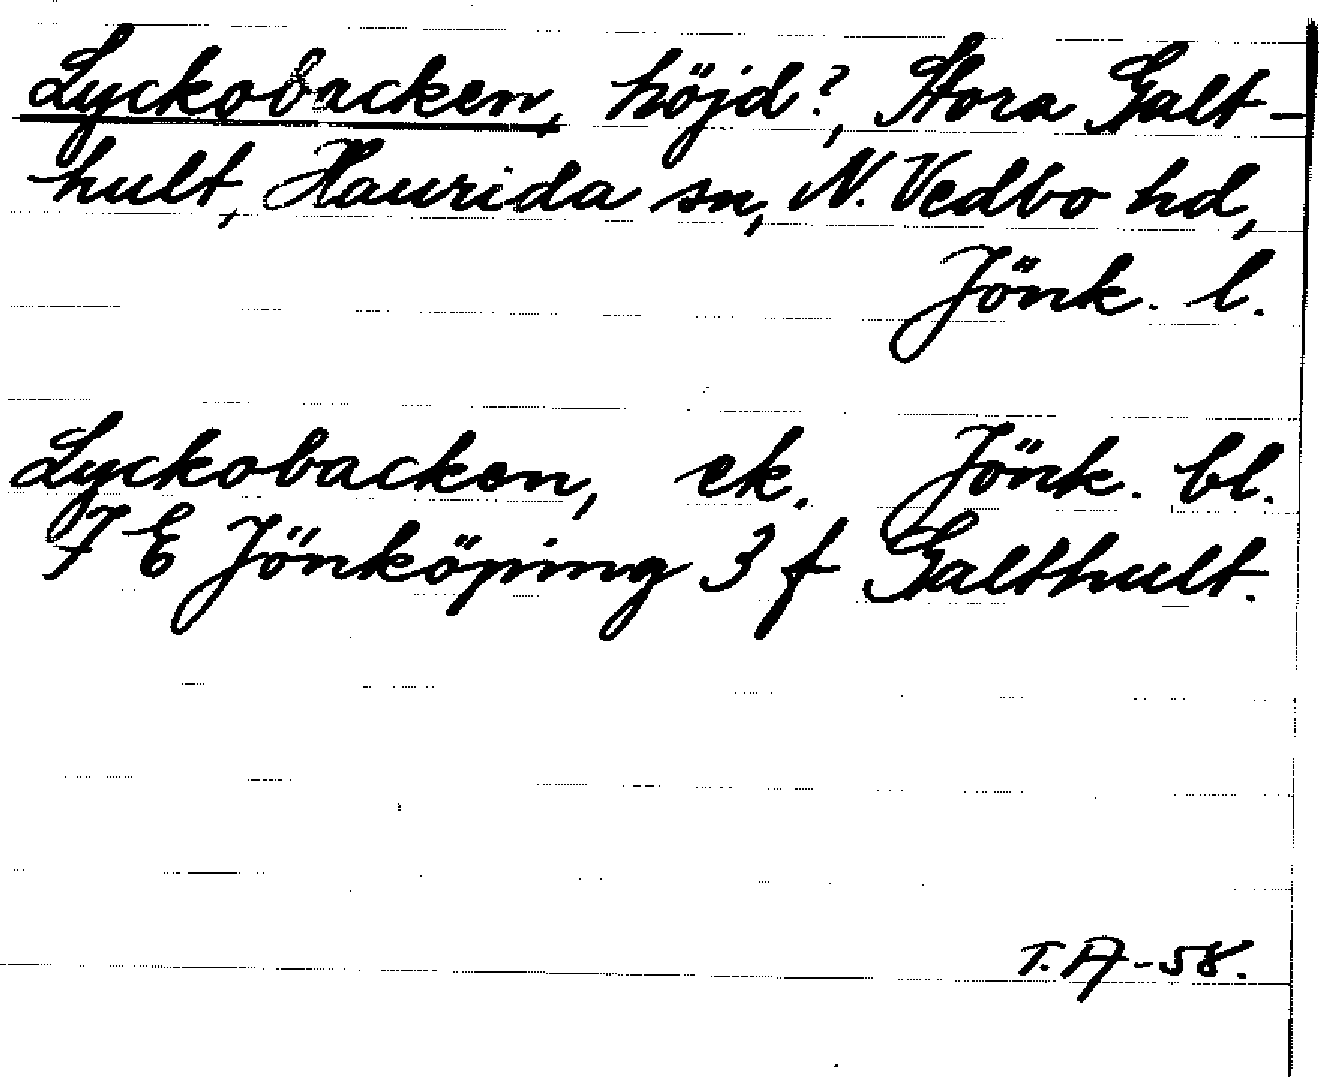 Lyckobacken, höjd?, Stora Galt-
-hult, Haurida sn, N. Vedbo hd,
Jönk. l.
Lyckobacken, ek. Jönk. bl.
7 E Jönköping 3 f Galthult.
T.A-58.